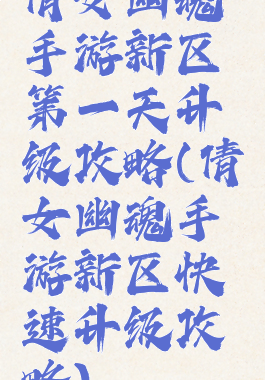 倩女幽魂
手游新区
第一天升
级攻略(倩
女幽魂手
游新区快
速升级攻
略)